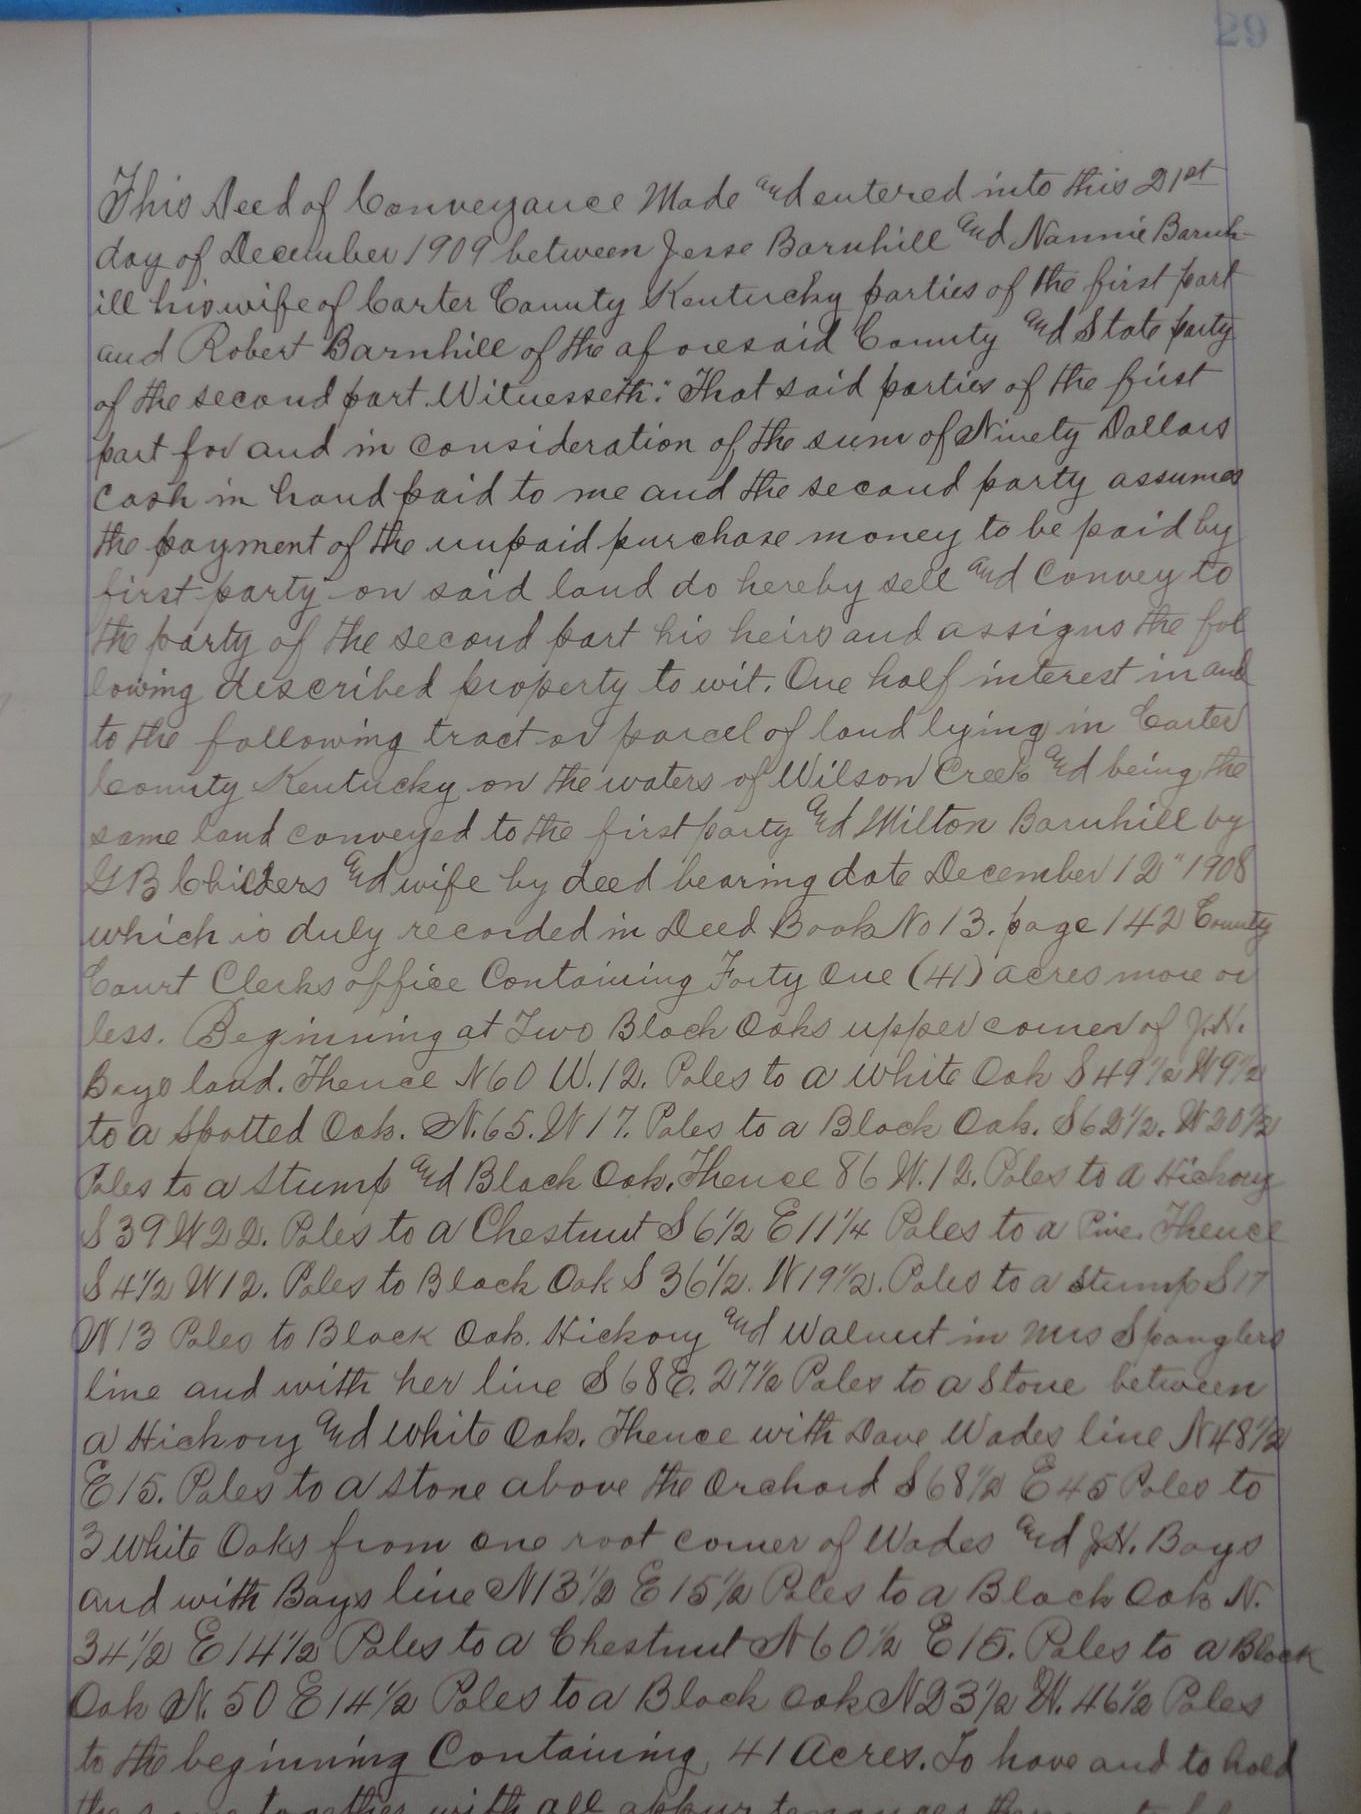 29
This Deed of Conveyance Made and entered into this 21st
day of December 1909 between Jesse Barnhill and Nannie Barnh-
ill his wife of Carter County Kentucky parties of the first part
and Robert Barnhill of the aforesaid County and State party
of the second part. Witnesseth: That said parties of the first
part for and in consideration of the sum of Ninety Dollars
Cash in hand paid to me and the second party assumes
the payment of the unpaid purchase money to be paid by
first party on said land do hereby sell and Convey to
the party of the second part his heirs and assigns the fol
lowing described property to wit. One half interest in and
to the following tract or parcel of land lying in Carter
County Kentucky on the waters of Wilson Creek and being the
same land conveyed to the first party and Milton Barnhill by
G B Childers and wife by deed bearing date December 12" 1908
which is duly recorded in Deed Book No 13. page 142 County
Court Clerks office Containing Forty One (41) acres more or
less. Beginning at Two Black Oaks upper corner of J.H.
Bays land. Thence N60 W. 12. Poles to a white Oak S49 1/2 W9 1/2
to a Spotted Oak. N.65. W 17. Poles to a Black Oak. S62 1/2. W20 1/2
Poles to a stump and Black Oak. Thence 86 W. 12. Poles to a Hickory
S39 W22. Poles to a Chestnut S6 1/2 E11 1/4 Poles to a Pine. Thence
S4 1/2 W12. Poles to Black Oak S 36 1/2. W19 1/2. Poles to a stump S17
W13 Poles to Black Oak. Hickory and Walnut in Mrs Spanglers
line and with her line S68E. 27 1/2 Poles to a Stone between
a Hickory and white Oak. Thence with Dave Wades line N48 1/2
E15. Poles to a stone above the Orchard S68 1/2 E45 Poles to
3 white Oaks from one root corner of Wades and J.H. Bays
and with Bays line N13 1/2 E15 1/2 Poles to a Black Oak N.
34 1/2 E14 1/2 Poles to a Chestnut N60 1/2 E15. Poles to a Black
Oak N. 50 E14 1/2 Poles to a Black Oak N23 1/2 W. 46 1/2 Poles
to the beginning Containing 41 Acres. To have and to hold
the same together with all appurtenances